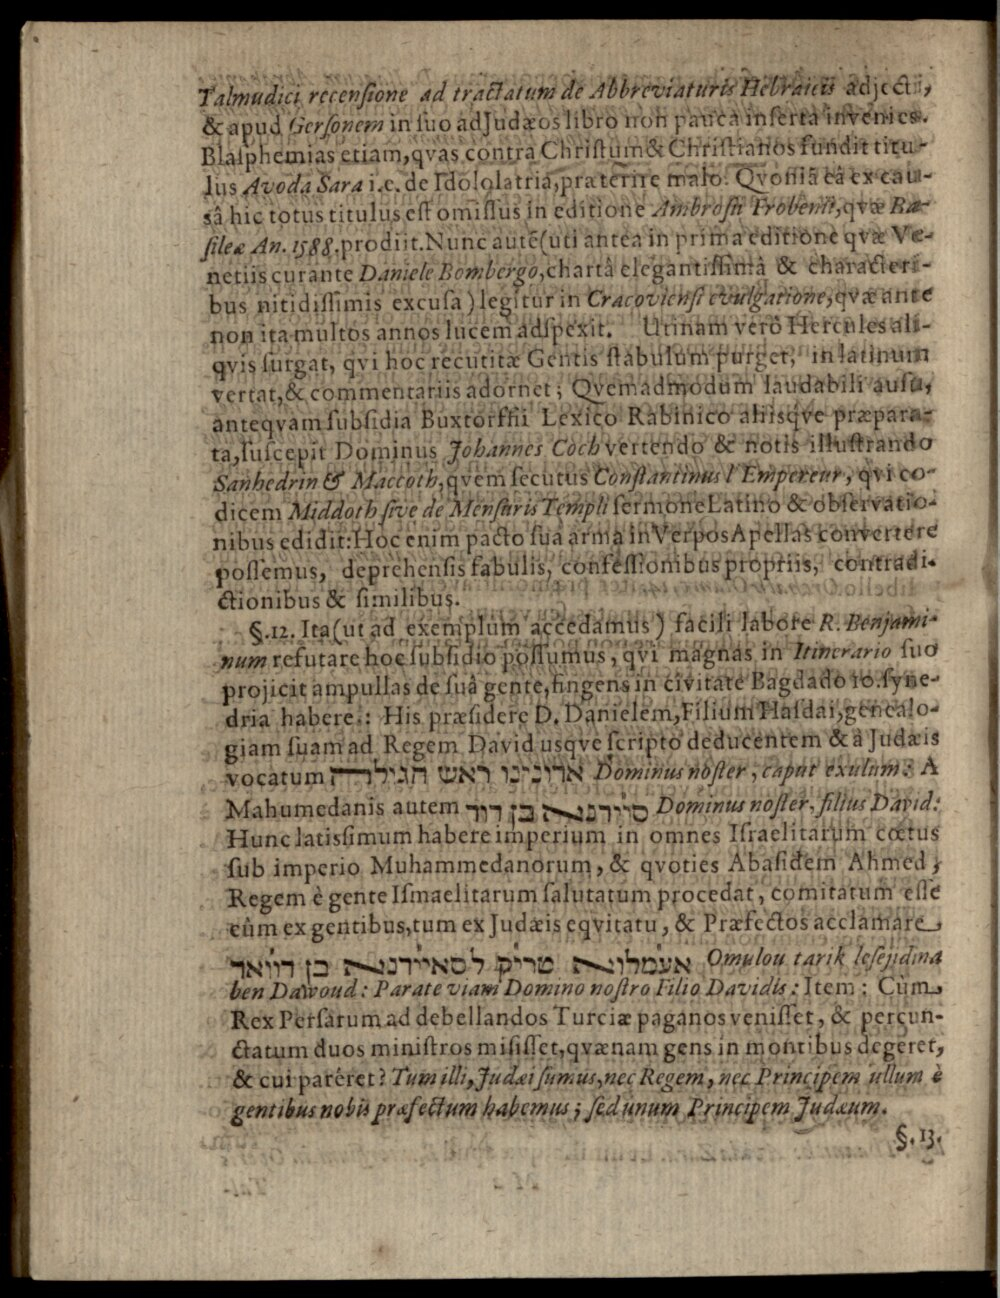 Talmudici recenſione ad tractatum de Abbreviaturis Hebraicis adjectâ,
& apud Gerſonem in ſuo ad Judæos libro non pauca inſerta invenies.
Blaſphemias etiam, qvas contra Chriſtum & Chriſtianos fundit titu-
lus Avoda Sara i.e. de Idololatria, præterire malo. Qvoniā eâ ex cau-
sâ hic totus titulus eſt omiſſus in editione Ambroſii Frobenii, qvæ Ba-
ſileæ An. 1588. prodiit. Nunc autē (uti antea in prima editione qvæ Ve-
netiis curante Daniele Bombergo, chartâ elegantiſſimâ & characteri-
bus nitidiſſimis excuſa) legitur in Cracovienſi evulgatione, qvæ ante
non ita multos annos lucem adſpexit. Utinam verò Hercules ali-
qvis ſurgat, qvi hoc recutitæ Gentis ſtabulum purget, in latinum
vertat, & commentariis adornet; Qvemadmodum laudabili auſu,
anteqvam ſubſidia Buxtorffii Lexico Rabinico aliisqve præpara-
ta, ſuſcepit Dominus Johannes Coch vertendo & notis illuſtrando
Sanhedrin & Maccoth, qvem ſecutus Conſtantinus l'Empereur, qvi co-
dicem Middoth ſive de Menſuris Templi ſermone Latino & obſervatio-
nibus edidit: Hoc enim pacto ſua arma in Verpos Apellas convertere
poſſemus, deprehenſis fabulis, confeſſionibus propriis, contradi-
ctionibus & ſimilibus.
§. 12. Ita (ut ad exemplum accedamus) facili labore R. Benjami-
num refutare hoc ſubſidio poſſumus, qvi magnas in Itinerario ſuo
projicit ampullas de ſuâ gente, fingens in civitate Bagdado 10. ſyne-
dria habere: His præſidere D. Danielem, Filium Haſdai, genealo-
giam ſuam ad Regem David usqve ſcripto deducentem & â Judæis
vocatum אדונינו ראש הגולה Dominus noſter, caput exulum: A
Mahumedanis autem סיידנא בן דוד Dominus noſter, filius David:
Hunc latiſſimum habere imperium in omnes Iſraelitarum cœtus
ſub imperio Muhammedanorum, & qvoties Abaſidem Ahmed,
Regem è gente Iſmaelitarum ſalutatum procedat, comitatum eſſe
cùm ex gentibus, tum ex Judæis eqvitatu, & Præfectos acclamare
אעמלוא טריק לסאיידנא בן דוואד Omulou tarik leſejidna
ben Dawoud: Parate viam Domino noſtro Filio Davidis: Item: Cùm
Rex Perſarum ad debellandos Turciæ paganos veniſſet, & percun-
ctatum duos miniſtros miſiſſet, qvænam gens in montibus degeret,
& cui parêret? Tum illi, Judæi ſumus, nec Regem, nec Principem ullum è
gentibus nobis præfectum habemus; ſed unum Principem Judæum.
§. 13.